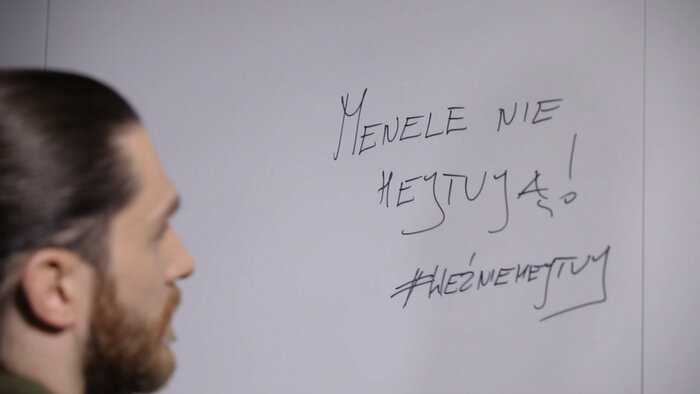 MENELE NIE
HEJTUJĄ!
#WEŹNIEHEJTUJ